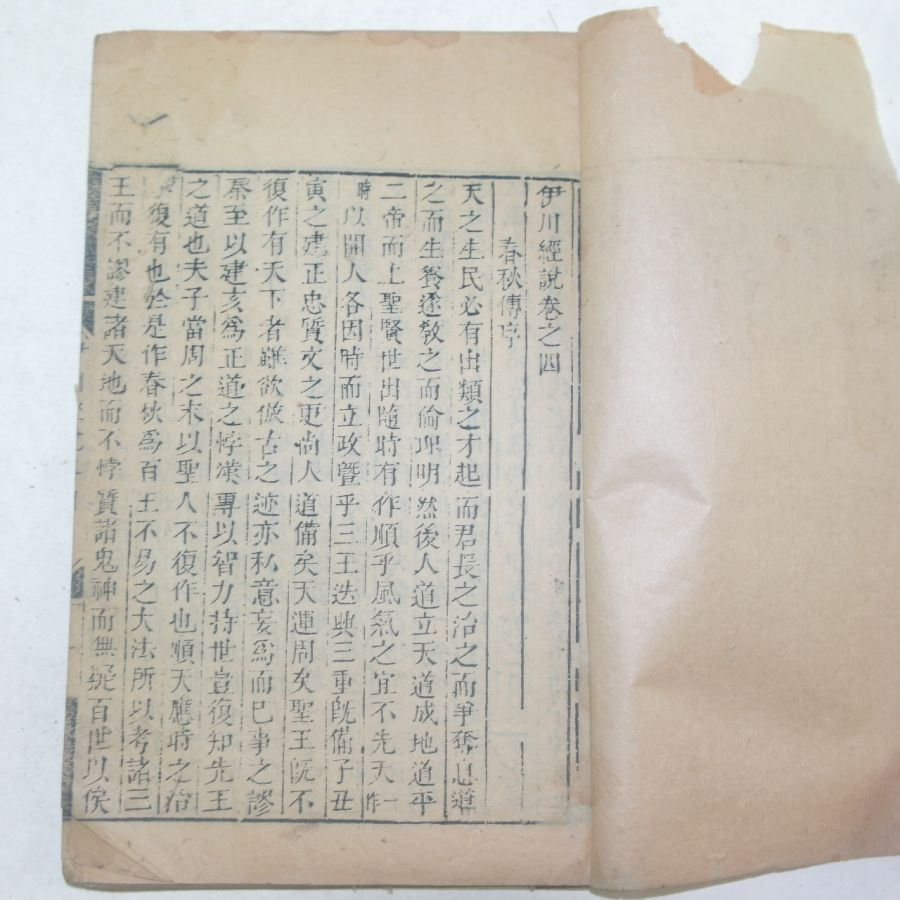 伊川經說卷之四
春秋傳序
天之生民必有出類之才起而君長之治之而爭奪息道
之而生養遂敎之而倫理明然後人道立天道成地道平
二帝而上聖賢世出隨時有作順乎風氣之宜不先天一作
時以開人各因時而立政曁乎三王迭興三重旣備子丑
寅之建正忠質文之更尙人道備矣天運周矣聖王旣不
復作有天下者雖欲倣古之迹亦私意妄爲而已事之謬
秦至以建亥爲正道之悖漢專以智力持世豈復知先王
之道也夫子當周之末以聖人不復作也順天應時之治
復有也於是作春秋爲百王不易之大法所以考諸三
王而不謬建諸天地而不悖質諸鬼神而無疑百世以俟